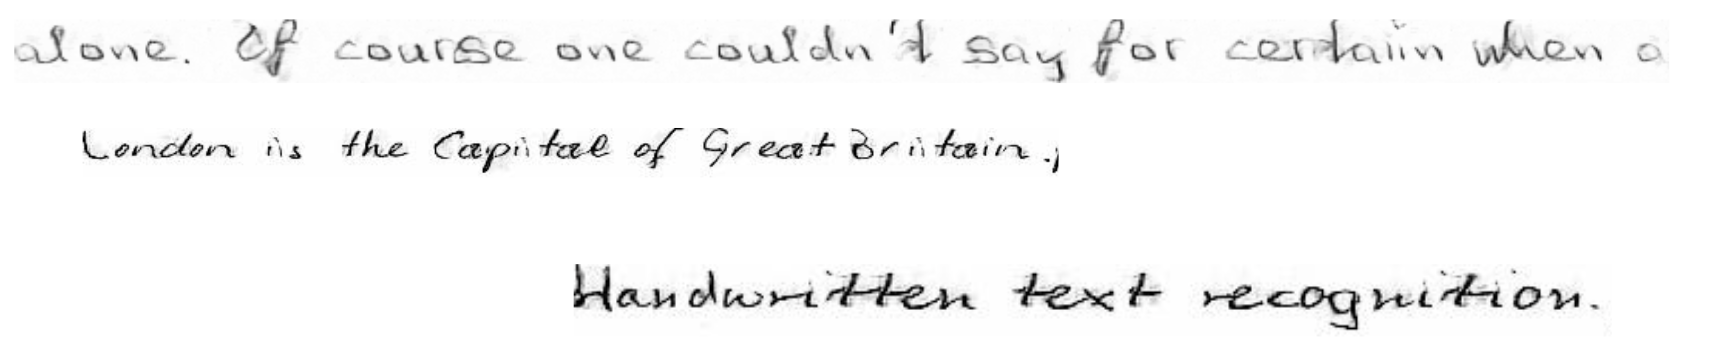 alone. Of course one couldn't say for certain when a
London is the Capital of Great Britain.,
Handwritten text recognition.